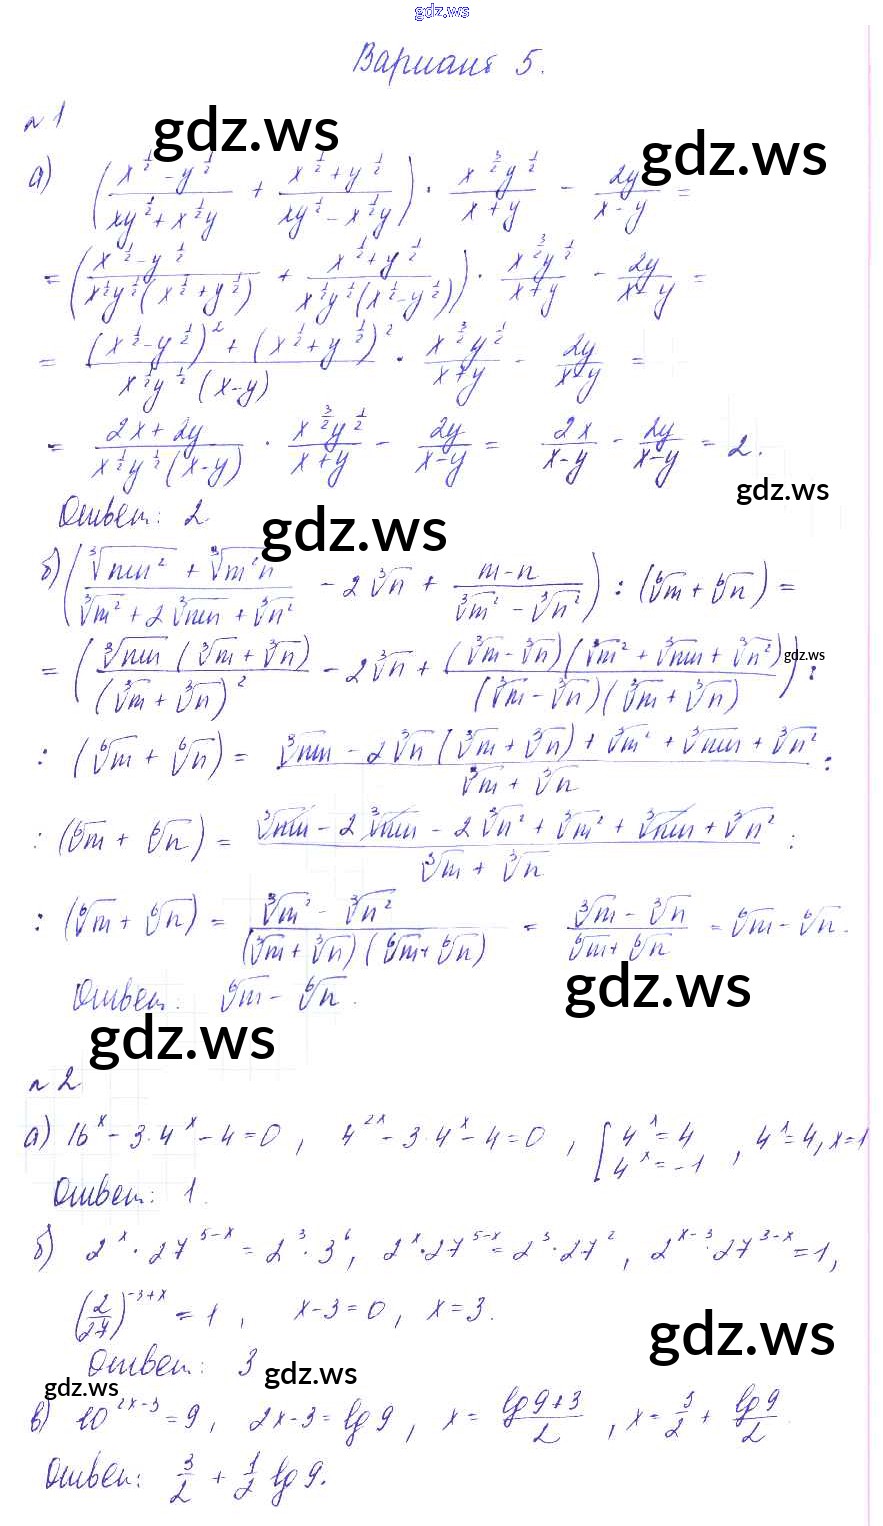 gdz.ws
Вариант 5.
№1
gdz.ws
gdz.ws
а) ((x^(1/2) - y^(1/2))/(xy^(1/2) + x^(1/2)y) + (x^(1/2) + y^(1/2))/(xy^(1/2) - x^(1/2)y)) · (x^(3/2)y^(1/2))/(x+y) - 2y/(x-y) =
= ((x^(1/2) - y^(1/2))/(x^(1/2)y^(1/2)(x^(1/2) + y^(1/2))) + (x^(1/2) + y^(1/2))/(x^(1/2)y^(1/2)(x^(1/2) - y^(1/2)))) · (x^(3/2)y^(1/2))/(x+y) - 2y/(x-y) =
= ((x^(1/2) - y^(1/2))² + (x^(1/2) + y^(1/2))²)/(x^(1/2)y^(1/2)(x-y)) · (x^(3/2)y^(1/2))/(x+y) - 2y/(x-y) =
= (2x + 2y)/(x^(1/2)y^(1/2)(x-y)) · (x^(3/2)y^(1/2))/(x+y) - 2y/(x-y) = 2x/(x-y) - 2y/(x-y) = 2.
gdz.ws
Ответ: 2
gdz.ws
б) ((∛mn² + ∛m²n)/(∛m² + 2∛mn + ∛n²) - 2∛n + (m-n)/(∛m² - ∛n²)) : (⁶√m + ⁶√n) =
= ((∛mn (∛m + ∛n))/(∛m + ∛n)² - 2∛n + ((∛m - ∛n)(∛m² + ∛mn + ∛n²))/((∛m - ∛n)(∛m + ∛n))) :
gdz.ws
: (⁶√m + ⁶√n) = (∛mn - 2∛n (∛m + ∛n) + ∛m² + ∛mn + ∛n²)/(∛m + ∛n) :
: (⁶√m + ⁶√n) = (∛mn - 2∛mn - 2∛n² + ∛m² + ∛mn + ∛n²)/(∛m + ∛n) :
: (⁶√m + ⁶√n) = (∛m² - ∛n²)/((∛m + ∛n)(⁶√m + ⁶√n)) = (∛m - ∛n)/(⁶√m + ⁶√n) = ⁶√m - ⁶√n.
gdz.ws
Ответ: ⁶√m - ⁶√n.
gdz.ws
№2
а) 16^x - 3·4^x - 4 = 0, 4^(2x) - 3·4^x - 4 = 0, [4^x = 4 4^x = -1, 4^x = 4, x = 1
Ответ: 1.
б) 2^x · 27^(5-x) = 2^3 · 3^6, 2^x · 27^(5-x) = 2^3 · 27^2, 2^(x-3) · 27^(3-x) = 1,
(2/27)^(-3+x) = 1, x-3 = 0, x = 3.
gdz.ws
Ответ: 3
gdz.ws
gdz.ws
в) 10^(2x-3) = 9, 2x-3 = lg 9, x = (lg 9 + 3)/2, x = 3/2 + lg 9/2.
Ответ: 3/2 + 1/2 lg 9.